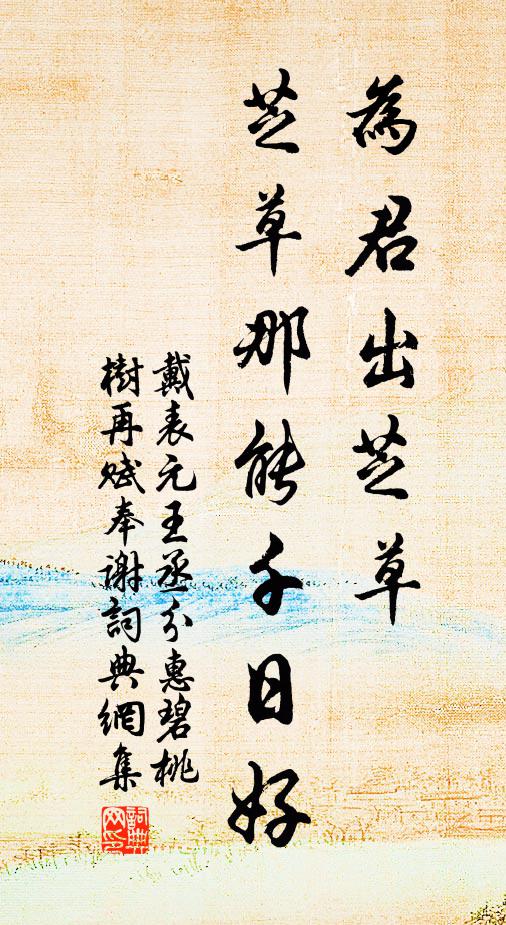 為君出芝草
芝草那能千日好
戴表元王丞分惠碧桃
樹再賦奉謝詞典網集
詞典
網印